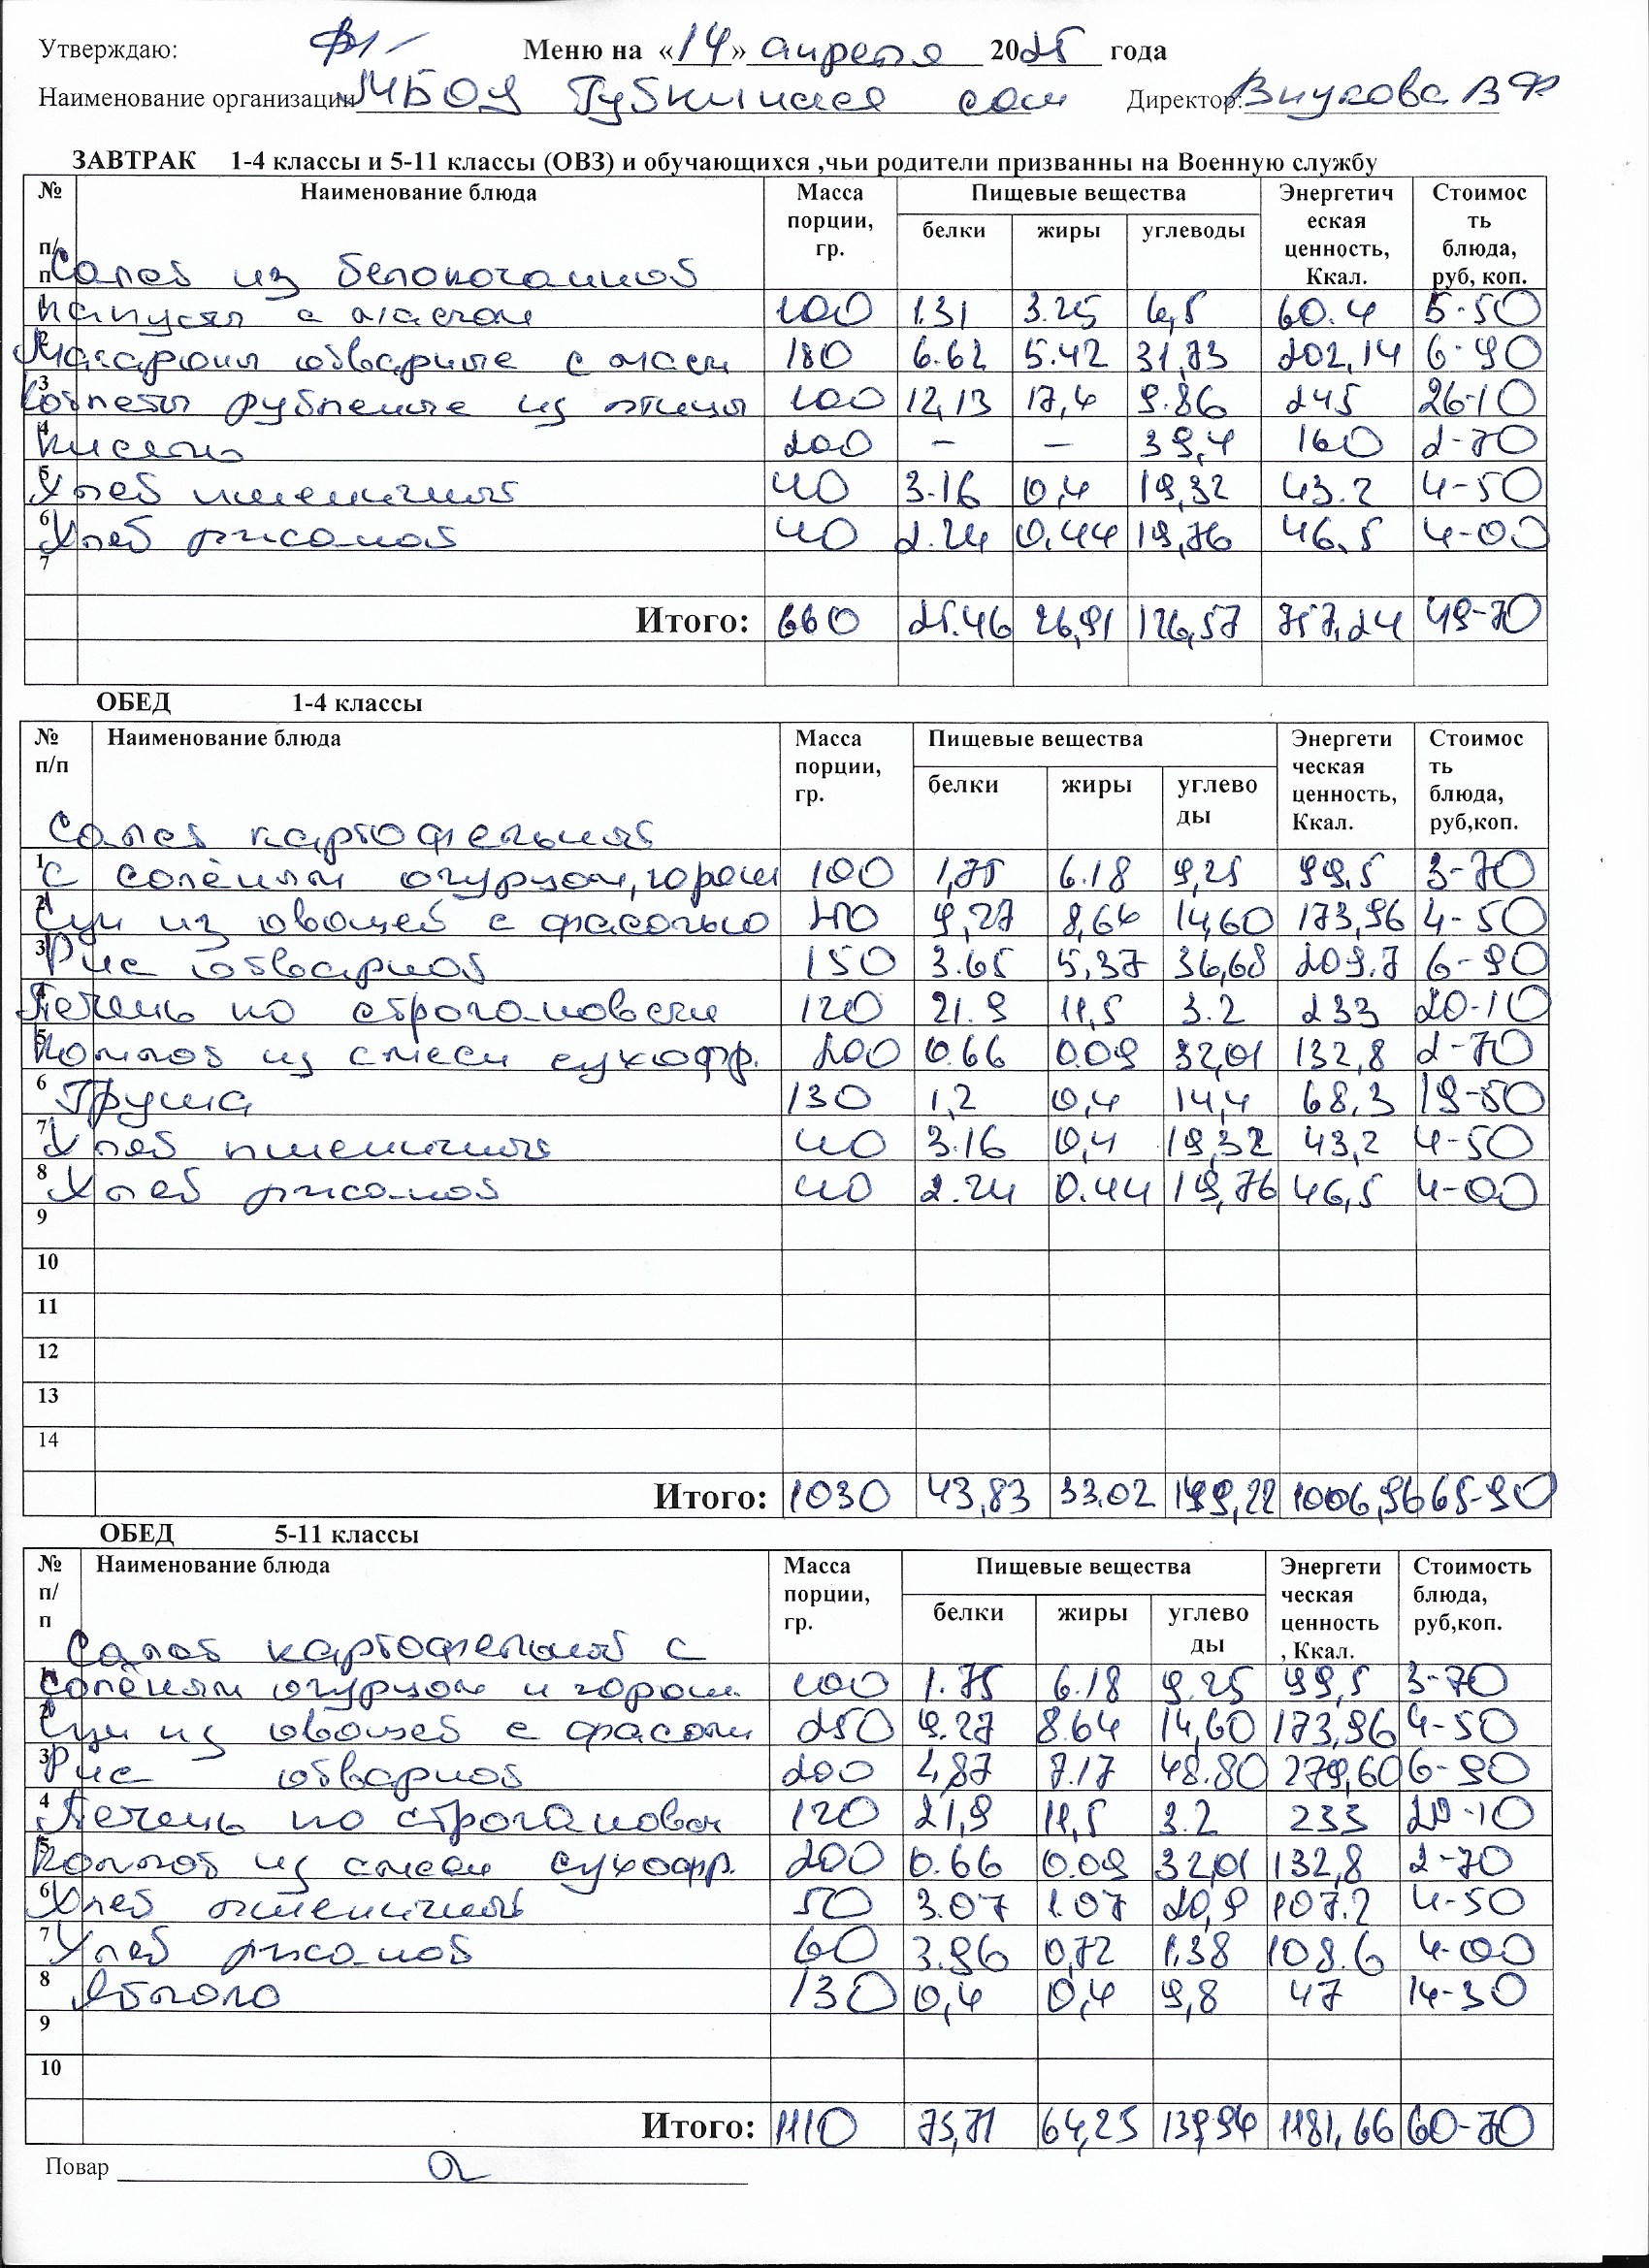 Утверждаю: Меню на «14» апреля 2025 года
Наименование организации МБОУ Губкинская сош Директор: Внукова В Ф
ЗАВТРАК 1-4 классы и 5-11 классы (ОВЗ) и обучающихся ,чьи родители призванны на Военную службу
№ п/п Наименование блюда Масса порции, гр. Пищевые вещества белки жиры углеводы Энергетическая ценность, Ккал. Стоимость блюда, руб, коп.
Салат из белокочанной
1 капусты с маслом 100 1.31 3.25 6,5 60.4 5-50
2 Макароны отварные с масл 180 6.62 5.42 31,73 202,14 6-90
3 Котлеты рубленые из птицы 100 12,13 17,4 9.86 245 26-10
4 Кисель 200 – – 39,4 160 2-70
5 Хлеб пшеничный 40 3.16 0,4 19,32 43.2 4-50
6 Хлеб ржаной 40 2.24 0.44 19,76 46.5 4-00
7
Итого: 660 25.46 26,91 126,57 757,24 49-70
ОБЕД 1-4 классы
№ п/п Наименование блюда Масса порции, гр. Пищевые вещества белки жиры углеводы Энергетическая ценность, Ккал. Стоимость блюда, руб,коп.
Салат картофельный
1 с солёным огурцом, горош 100 1,75 6.18 9,25 99,5 3-70
2 Суп из овощей с фасолью 9,27 8,64 14,60 173,96 4-50
3 Рис отварной 150 3.65 5,37 36,68 209.7 6-90
4 Печень по строгоновски 120 21.9 11,5 3.2 233 20-10
5 Компот из смеси сухофр. 200 0.66 0.09 32,01 132,8 2-70
6 Груша 130 1,2 0,4 14,4 68,3 19-50
7 Хлеб пшеничный 40 3.16 0,4 19,32 43,2 4-50
8 Хлеб ржаной 40 2.24 0.44 19,76 46,5 4-00
9
10
11
12
13
14
Итого: 1030 43,83 33.02 149,22 1006,96 65-90
ОБЕД 5-11 классы
№ п/п Наименование блюда Масса порции, гр. Пищевые вещества белки жиры углеводы Энергетическая ценность, Ккал. Стоимость блюда, руб,коп.
Салат картофельный с
1 солёным огурцом и горош. 100 1.75 6.18 9.25 99,5 3-70
2 Суп из овощей с фасоли 250 9.27 8.64 14,60 173,96 4-50
3 Рис отварной 200 4,87 7.17 48.80 279,60 6-90
4 Печень по строганов 120 21,9 11,5 3.2 233 20-10
5 Компот из смеси сухофр. 200 0.66 0.09 32,01 132,8 2-70
6 Хлеб пшеничный 50 3.07 1.07 20,9 107.2 4-50
7 Хлеб ржаной 60 3.96 0,72 1,38 108.6 4-00
8 Яблоко 130 0,4 0,4 9,8 47 14-30
9
10
Итого: 1110 75,71 64,25 139,94 1181,66 60-70
Повар